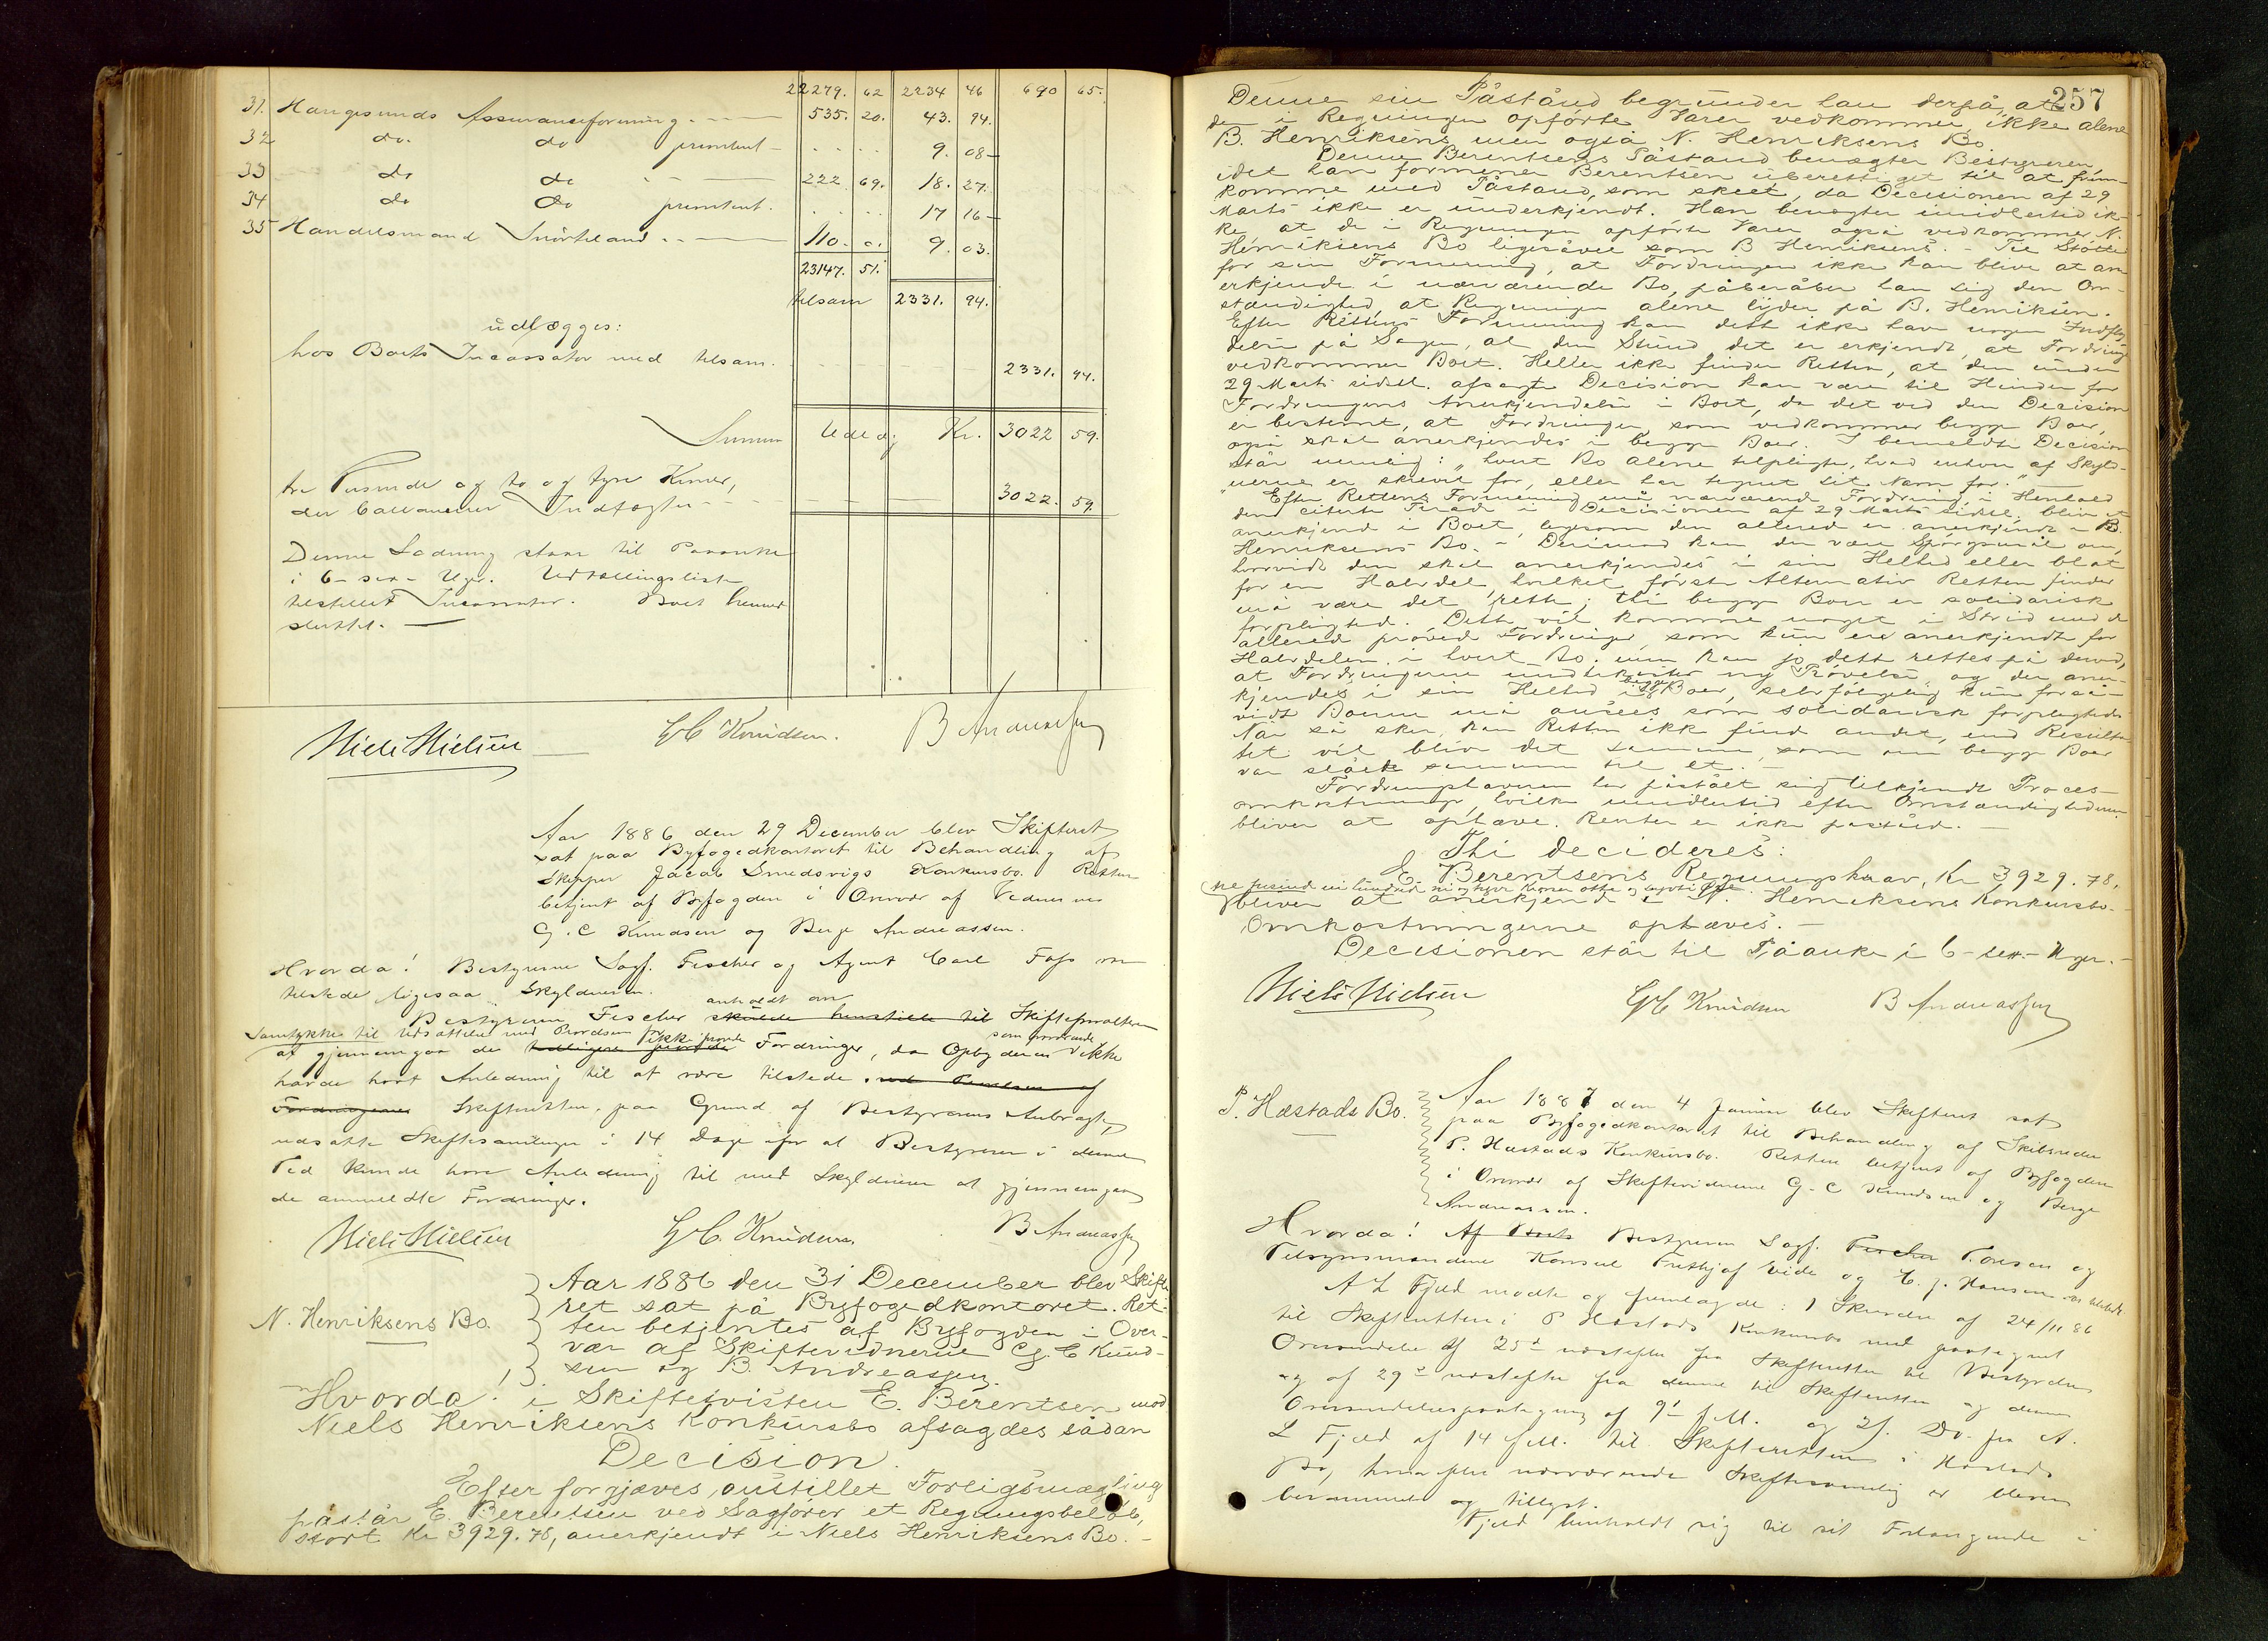 22279. 62 2234 46 690 65.
31. Haugesunds Assuranceforening. 535. 20. 43. 94.
32 do. do primtent 9. 08
33 do do 222. 69. 18. 27.
34 do do primtent. 17 16
35 Handelsmand 110. 0. 9. 03.
23147. 51.
tilsam 2331. 94.
udlægges:
hos Boets Incassator med tilsam. 2331. 94.
Summa Udlæg Kr. 3022 59.
tre Tusinde og to og tyve Kroner,
der balancerer Indtægter 3022. 59.
Denne Lodning staar til Paaanke
i 6 - sex - Uger. Udlodningsliste
tilstillet Incassator. Boet
sluttet.
Niels Nielsen G C Knudsen. B Andreassen
Aar 1886 den 29 December blev Skifteret
sat paa Byfogedkontoret til Behandling af
Skipper Jacob Smedsvigs Konkursbo. Retten
betjent af Byfogden i Overvær af Vidnerne
G. C Knudsen og Berge Andreassen.
Hvorda! Bestyrerne Sagf. Fischer og Agent Carl
tilstede ligesaa Skyldneren.
anholdt om
Bestyreren Fischer skulde henstille til Skifteforvalteren
Samtykke til Udsættelse med
at gjennemgaa de Fordringer, da Opbyderen ikke
havde havt Anledning til at være tilstede.
Fordringerne Skifteretten, paa Grund af Bestyrerens Anbragte,
udsatte Skiftesamlingen i 14 Dage for at Bestyreren i denne
Tid kunde have Anledning til med Skyldneren at gjennemgaa
de anmeldte Fordringer.
Niels Nielsen G C Knudsen B Andreassen
N. Henriksens Bo.
Aar 1886 den 31 December blev Skifte-
ret sat på Byfogedkontoret. Ret-
ten betjentes af Byfogden i Over-
vær af Skiftevidnerne G. C Knud-
sen og B. Andreassen.
Hvorda! i Skiftetvisten E. Berentsen mod
Niels Henriksens Konkursbo afsagdes sådan
Decision.
Efter forgjæves anstillet Forligsmægling
påstår E. Berentsen ved Sagfører et Regningsbeløb,
stort Kr 3929.78, anerkjendt i Niels Henriksens Bo. -
257
Denne sin Påstand begrunder han derpå, at
de i Regningen opførte Varer vedkommer ikke alene
B. Henriksens men også N. Henriksens Bo.
Denne Berentsens Påstand benægter Bestyreren
idet han formener Berentsen uberettiget til at frem-
komme med Påstand, som skeet, da Decisionen af 29
Marts ikke er underkjendt. Han benægter imidlertid ik-
ke at de i Regningen opførte Varer også vedkommer N.
Henriksens Bo ligesåvel som B Henriksens. - Til Støtte
for sin Formening, at Fordringen ikke kan blive at an-
erkjende i nærværende Bo, påberåber han sig den Om-
stændighed, at Regningen alene lyder på B. Henriksen.
Efter Rettens Formening kan dette ikke have nogen Indfly-
delse på Sagen, al den Stund det er erkjendt, at Fordringen
vedkommer Boet. Heller ikke finder Retten, at den under
29 Marts sidstl. afsagte Decision kan være til Hinder for
Fordringens Anerkjendelse i Boet, da det ved den Decision
er bestemt, at Fordringer som vedkommer begge Boer,
også skal anerkjendes i begge Boer. I bemeldte Decision
står nemlig: "hvert Bo alene tilpligtes, hvad enhver af Skyld-
"nerne er skrevet for, eller har tegnet sit Navn for."
Efter Rettens Formening må nærværende Fordring, i Henhold
den citerte Tirade i Decisionen af 29 Marts sidstl. blive at
anerkjende i Boet, ligesom den allerede er anerkjendt i B.
Henriksens Bo. - Derimod kan der være Spørgsmål om,
hvorvidt den skal anerkjendes i sin Helhed eller blot
for en Halvdel, hvilket første Alternativ Retten finder
må være det rette; thi begge Boer er solidarisk
forpligtede. Dette vil komme noget i Strid med de
allerede prøvede Fordringer, som kun ere anerkjendt for
Halvdelen i hvert Bo, men kan jo dette rettes på derved,
at Fordringerne underkastes ny Prøvelse og der aner-
kjendes i sin Helhed i begge Boer, selvfølgelig kun forså-
vidt Boerne må ansees som solidarisk forpligtede.
Når så sker, kan Retten ikke finde andet, end Resulta-
tet vil blive det samme, som om begge Boer
var slået sammen til et. -
Fordringshaveren har påstået sig tilkjendt Proces-
omkostninger, hvilke imidlertid efter Omstændighederne
bliver at ophæve. Renter er ikke påståed. -
Thi decideres:
E. Berentsens Regningskrav, Kr 3929.78,
tre tusind ni hundred ni og tyve Kroner otte og syvti Øre
bliver at anerkjende i N. Henriksens Konkursbo.
Omkostningerne ophæves. -
Decisionen står til Påanke i 6 - sex - Uger. -
Niels Nielsen G C Knudsen B Andreassen
P. Hæstads Bo.
Aar 1887 den 4 Januar blev Skifteret sat
paa Byfogedkontoret til Behandling af Skibsreder
P. Hæstads Konkursbo. Retten betjent af Byfogden
i Overvær af Skiftevidnerne G. C Knudsen og Berge
Andreassen.
Hvorda! Af Boets Bestyreren Sagf. Fischer Thoresen og
Tilsynsmændene Konsul Fridtjof Eide og C. J. Hansen var tilstede.
A L Fjeld mødte og fremlagde: 1 Skrivelse af 24/11 86
til Skifteretten i P Hæstads Konkursbo med paategnet
Omsendelse af 25d næstefter fra Skifteretten til Bestyrelsen
og af 29d næstefter fra denne til Skifteretten og dennes
Omsendelsespaategning af 9d f.M. og 2). Do. fra A.
L Fjeld af 14 f.M. til Skifteretten i Hæstads
Bo, hvorefter nærværende Skiftesamling er bleven
berammet og tillyst.
Fjeld henholdt sig til sit Forlangende i